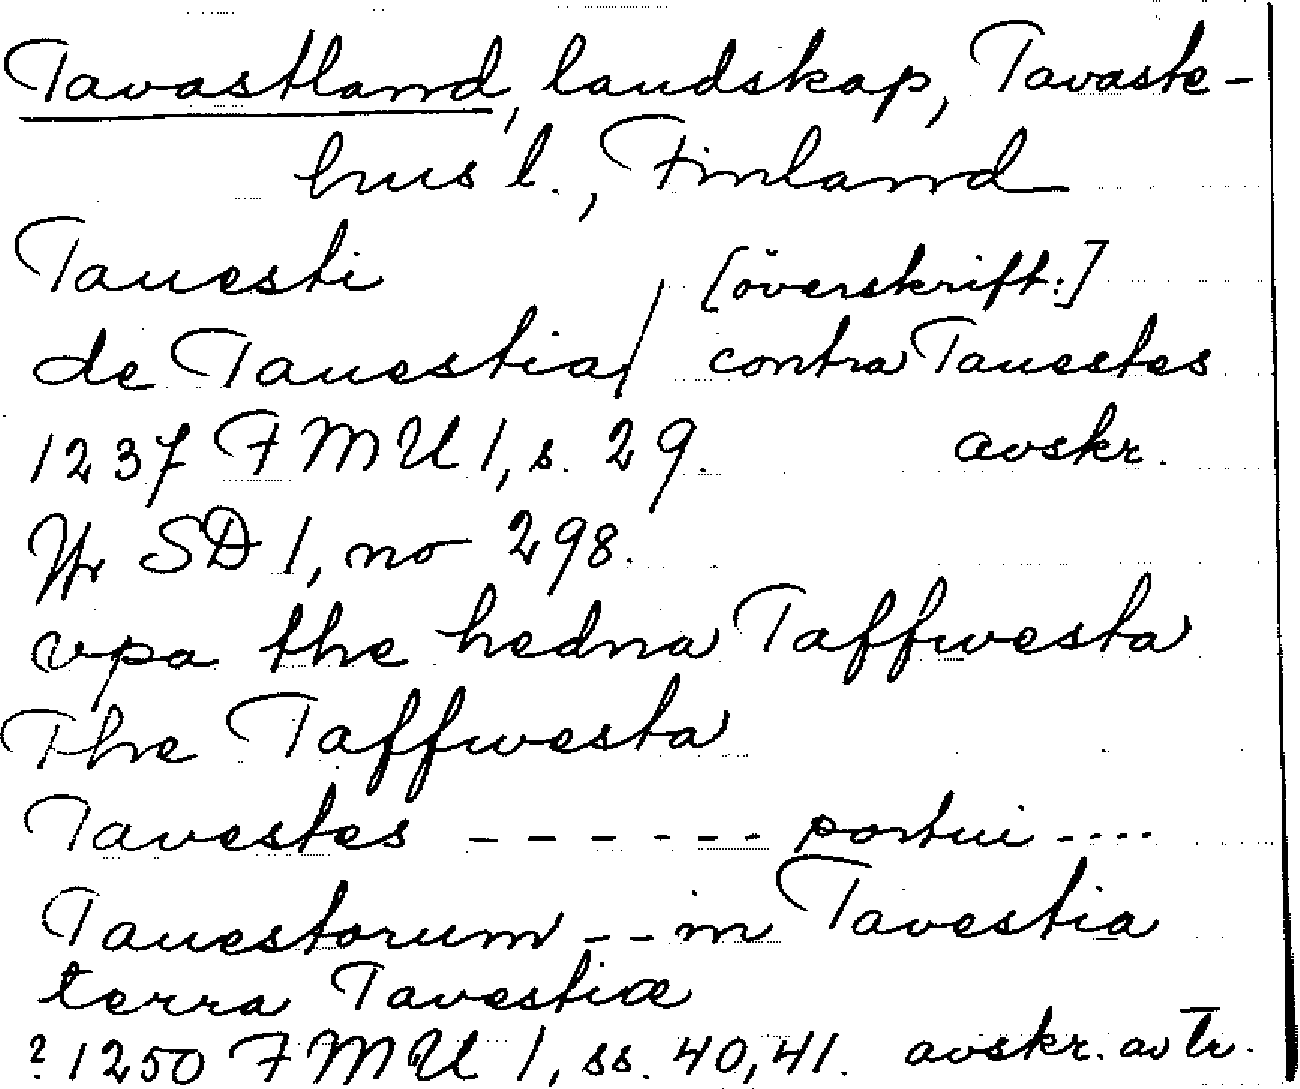 Tavastland, landskap, Tavaste-
hus l., Finland
Tauesti [överskrift:]
de Tauestia / contra Tauestes
1237 FMU 1, s. 29. avskr.
Jfr SD 1, no 298.
vpa the hedna Taffwesta
The Taffwesta
Tavestes - - - - - - portui - - - -
Tauestorum - - in Tavestia
terra Tavestiæ
? 1250 FMU 1, ss. 40, 41. avskr. av tr.